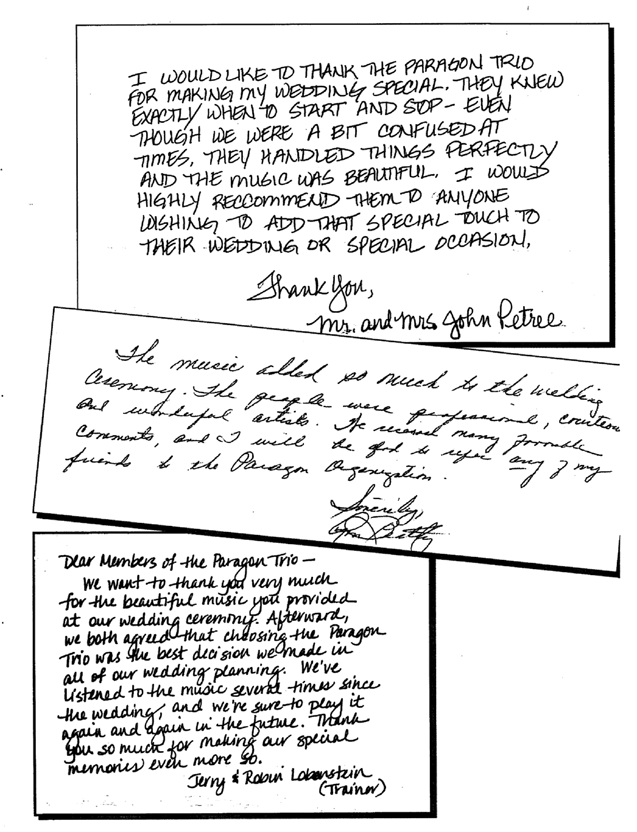 I WOULD LIKE TO THANK THE PARAGON TRIO
FOR MAKING MY WEDDING SPECIAL. THEY KNEW
EXACTLY WHEN TO START AND STOP - EVEN
THOUGH WE WERE A BIT CONFUSED AT
TIMES, THEY HANDLED THINGS PERFECTLY
AND THE MUSIC WAS BEAUTIFUL. I WOULD
HIGHLY RECCOMMEND THEM TO ANYONE
WISHING TO ADD THAT SPECIAL TOUCH TO
THEIR WEDDING OR SPECIAL OCCASION.
Thank You,
Mr. and Mrs. John Petree
The music added so much to the wedding
ceremony. The people were professional, courteous
and wonderful artists. We received many favorable
comments, and I will be glad to refer any of my
friends to the Paragon Organization.
Sincerely,
Dear Members of the Paragon Trio —
We want to thank you very much
for the beautiful music you provided
at our wedding ceremony. Afterward,
we both agreed that choosing the Paragon
Trio was the best decision we made in
all of our wedding planning. We've
listened to the music several times since
the wedding, and we're sure to play it
again and again in the future. Thank
you so much for making our special
memories even more so.
Jerry & Robin Lobenstein
(Trainor)